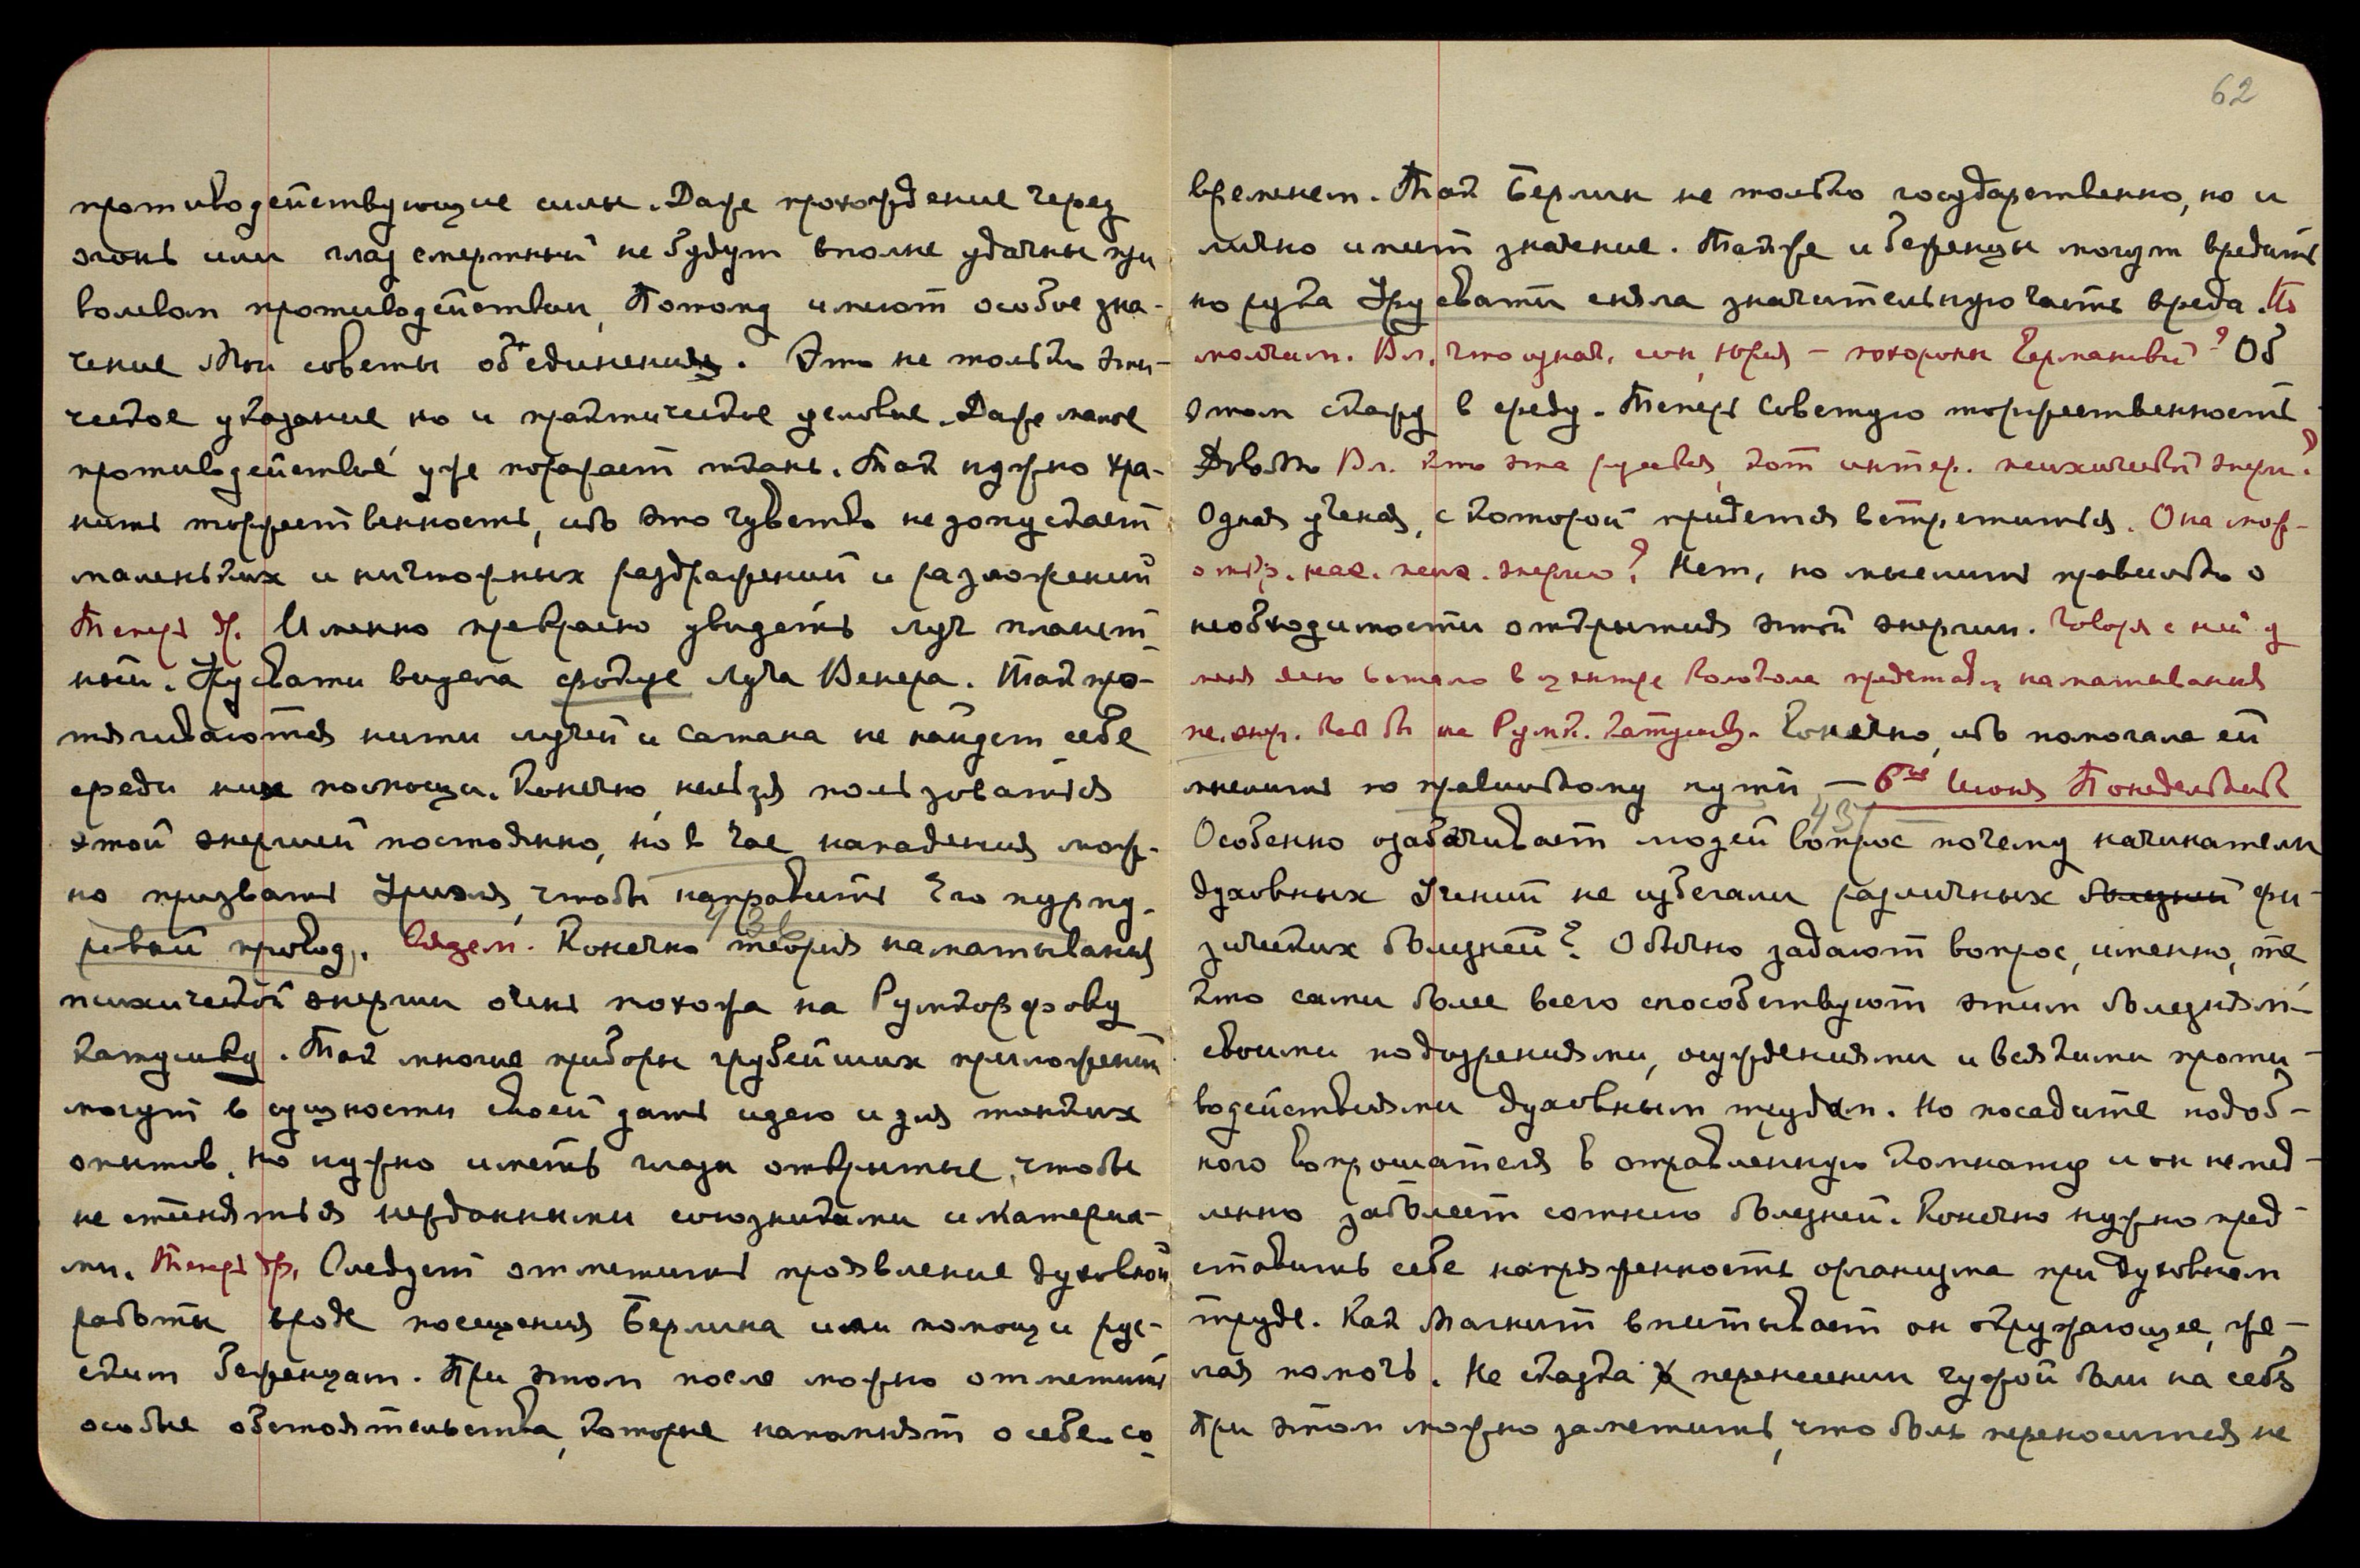 противодействующие силы. Даже прохождение через
огонь или глад смертный не будут вполне удачны при
волевом противодействии, Потому имеют особое зна-
чение Мои советы объединения. Это не только эти-
ческое указание но и практическое условие. Даже малое
противодействие уже поражает ткань. Так нужно хра-
нить торжественность, ибо это чувство не допускает
маленьких и ничтожных раздражений и разложений
Теперь др. Именно прекрасно увидеть луч планет-
ный. Урусвати видела фокус луча Венера. Так про-
тягиваются нити лучей и сатана не найдет себе
среди них помощи. Конечно, нельзя пользоваться
этой энергией постоянно, но в час нападения мож-
но призвать Уриэля, чтобы направить Его пурпу-
ровый провод. 436
Сядем. Конечно теория наматывания
психической энергии очень похожа на Румкорфову
катушку. Так многие приборы грубейших приложений
могут в сущности своей дать идею и для тонких
опытов, но нужно иметь глаза открытые, чтобы
не стесняться нежданными союзниками и материа-
ми. Теперь др. Следует отметить проявление духовной
работы вроде посещения Берлина или помощи рус-
ским беженцам. При этом после можно отметить
особые обстоятельства, которые напомнят о себе со
62
временем. Так Берлин не только государственно, но и
лично имеет значение. Также и беженцы могут вредить
но рука Урусвати сняла значительную часть вреда. По
молчим. Вл. что означ. сон Юрия – похороны Германовой? Об
этом скажу в среду. Теперь Советую торжественность
Довольно Вл. Кто эта русская, кот интер. психической энерг.?
Одная ученая, с которой придется встретиться. Она мож-
откр. нас. псих. энергию? Нет, но мыслит правильно о
необходимости открытия этой энергии. Говоря с ней у
меня ясно встало в центре Колокола представл наматывания
пс. энер. как бы на Румк. катушку. Конечно, ибо помогала ей
мыслить по правильному пути — 6го Июня Понедельник
437
Особенно озабачивает людей вопрос почему начинатели
духовных Учений не избегали различных болезней фи-
зических болезней? Обычно задают вопрос, именно, те
кто сами более всего способствуют этим болезням
своими подозрениями, осуждениями и всякими проти-
водействиями духовным трудам. Но посадите подоб-
ного вопрошателя в отравленную комнату и он немед-
ленно заболеет сотнею болезней. Конечно нужно пред-
ставить себе напряженность организма при духовном
труде. Как Магнит впитывает он окружающее, же-
лая помочь. Не сказка о перенесении чужой боли на себя
При этом можно заметить, что боль переносится не